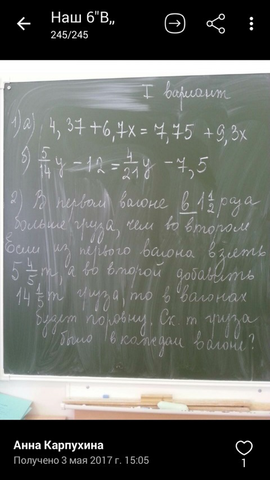 Наш 6"В,,
245/245
I вариант
1) а) 4,37 + 6,7x = 7,75 + 9,3x
б) 5/14 y − 12 = 4/21 y − 7,5
2) В первом вагоне в 1 1/2 раза
больше груза, чем во втором
Если из первого вагона взять
5 4/5 т, а во второй добавить
14 1/5 т груза, то в вагонах
будет поровну. Ск. т груза
было в каждом вагоне?
Анна Карпухина
Получено 3 мая 2017 г. 15:05
1